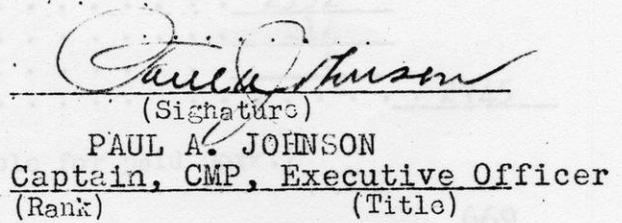 Paul A Johnson
(Signature)
PAUL A. JOHNSON
Captain, CMP, Executive Officer
(Rank) (Title)